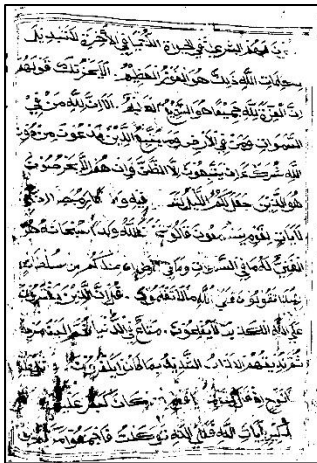 لهم البشرى في الحيوة الدنيا وفي الاخرة لا تبديل
لكلمات الله ذلك هو الفوز العظيم ولا يحزنك قولهم
ان العزة لله جميعا هو السميع العليم الا ان لله من في
السموات ومن في الارض وما يتبع الذين يدعون من دون
الله شركاء ان يتبعون الا الظن وان هم الا يخرصون
هو الذي جعل لكم الليل فيه
لايات لقوم يسمعون قالوا الله ولدا سبحانه هو
الغني له ما في السموات وما في عندكم من سلطان
بهذا اتقولون على الله ما لا تعلمون قل ان الذين يفترون
على الله الكذب لا يفلحون متاع في الدنيا ثم الينا مرجعهم
ثم نذيقهم العذاب الشديد بما كانوا يكفرون
نوح اذ قال لقومه كان كبر عليكم
بايات الله فعلى الله توكلت فاجمعوا امركم